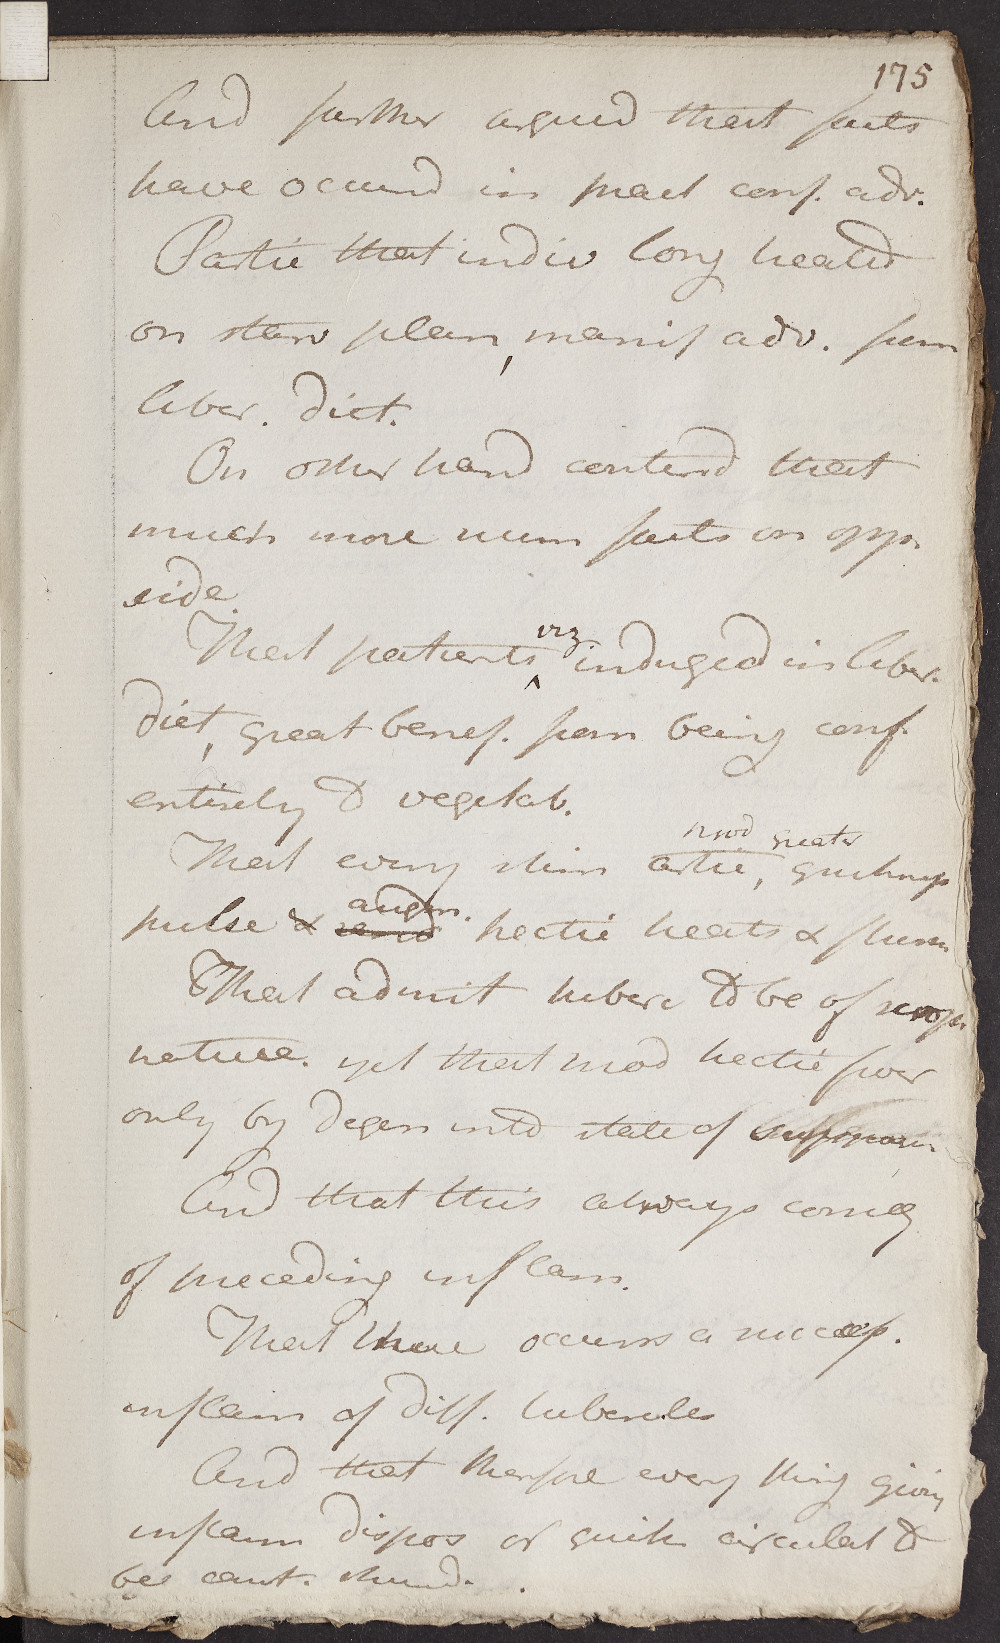 175
And further argued that facts
have occurrd in pract conf. adv.
Partic that indiv long heated
on stew plan, manif adv. from
liber. diet.
On other hand contend that
much more num facts on opp.
side
That patients viz indulged in liber.
diet, great benef. from being conf.
entirely to vegetab.
That every stim artic, prod greater quickness
pulse & augm. hectic heats & flush
That admit tuberc to be of
nature. yet that mod hectic fever
only by degen into state of
And that this always conseq
of preceding inflam.
That there occurs a success.
inflam of diff. tubercules
And that therfore every thing givin
inflam dispos or quick circulat to
be caut. shund.